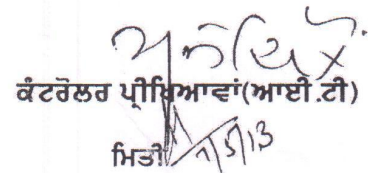 ਕੰਟਰੋਲਰ ਪ੍ਰੀਖਿਆਵਾਂ(ਆਈ.ਟੀ)
ਮਿਤੀ 7/5/13